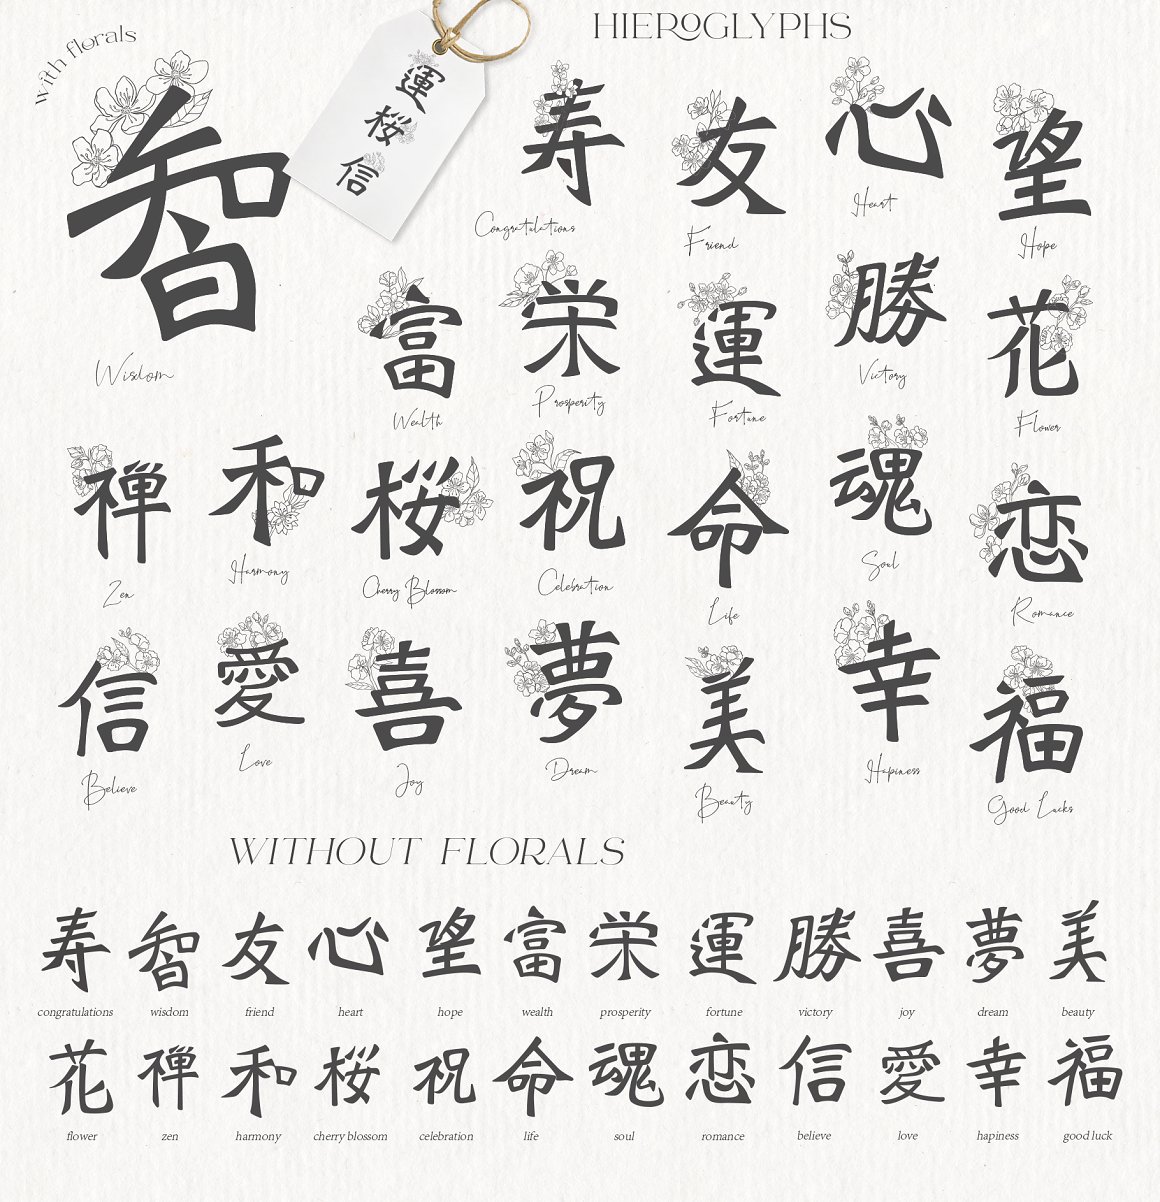 HIEROGLYPHS
with florals
智
Wisdom
運
桜
信
寿
Congratulations
友
Friend
心
Heart
望
Hope
富
Wealth
栄
Prosperity
運
Fortune
勝
Victory
花
Flower
禅
Zen
和
Harmony
桜
Cherry Blossom
祝
Celebration
命
Life
魂
Soul
恋
Romance
信
Believe
愛
Love
喜
Joy
夢
Dream
美
Beauty
幸
Hapiness
福
Good Lucks
WITHOUT FLORALS
寿 智 友 心 望 富 栄 運 勝 喜 夢 美
congratulations wisdom friend heart hope wealth prosperity fortune victory joy dream beauty
花 禅 和 桜 祝 命 魂 恋 信 愛 幸 福
flower zen harmony cherry blossom celebration life soul romance believe love hapiness good luck